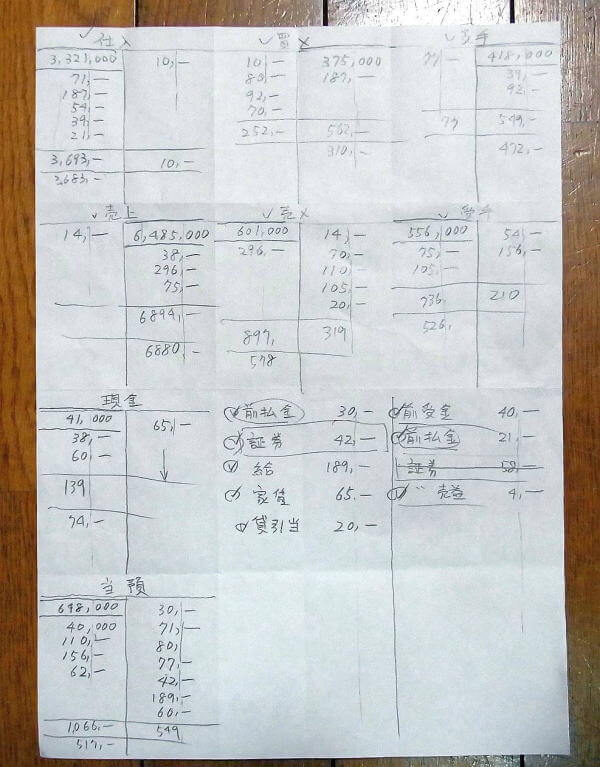 ✓仕入
3,321,000 10,―
71,―
187,―
54,―
39,―
21,―
3,693,― 10,―
3,683,―
✓買メ
10,― 375,000
80,― 187,―
92,―
70,―
252,― 562,―
310,―
✓支手
77,― 418,000
39,―
92,―
77 549,―
472,―
✓売上
14,― 6,485,000
38,―
296,―
75,―
6894,―
6880,―
✓売メ
601,000 14,―
296,― 70,―
110,―
105,―
20,―
897, 319
578
✓受手
556,000 54,―
75,― 156,―
105,―
736, 210
526,
現金
41,000 65,―
38,― ↓
60,―
139
74,―
✓前払金 30,―
✓証券 42,―
✓給 189,―
✓家賃 65.―
✓貸引当 20,―
✓前受金 40,―
✓前払金 21,―
証券 58,―
✓〃売益 4,―
当預
698,000 30,―
40,000 71,―
110,― 80,
156,― 77,―
62,― 42,―
189,―
60,―
1,066,― 549
517,―